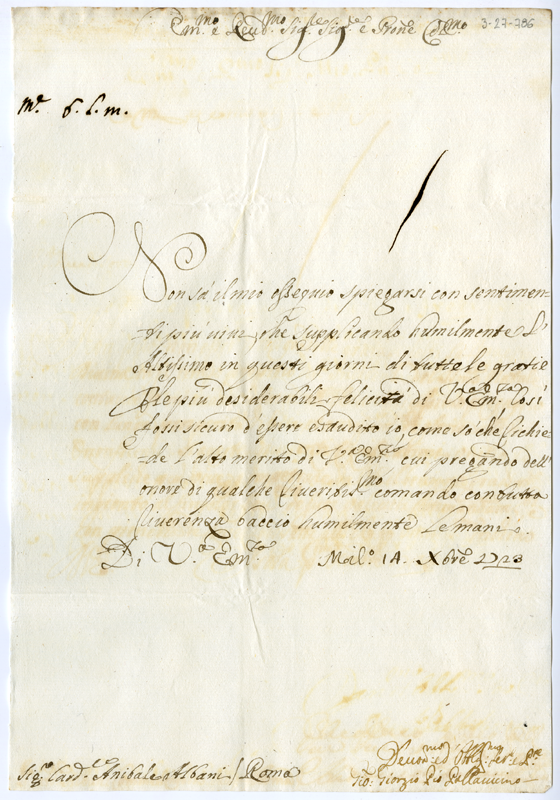 3-27-786
Em.mo e Reud.mo Sig.re Sig.re e Prone Col.mo
Non sà il mio esseguio spiegarsi con sentimen-
ti più uiui, che supplicando humilmente L'
Altissimo in questi giorni di tutte le gratie
e le più desiderabili felicità di V.a Em.za Così
fossi sicuro d'essere esaudito io, come sò che richie-
de l'alto merito di V.a Em.za cui pregando dell'
onore di qualche riueritis.mo comando con tutta
riuerenza baccio humilmente le mani.
Di V.a Em.za Mil.o 14 Xbre 1723
Deuot.mo ed Obblig.mo Ser.re
Sig.re Card.le Anibale Albani / Roma
Gio: Giorgio Pallauicino